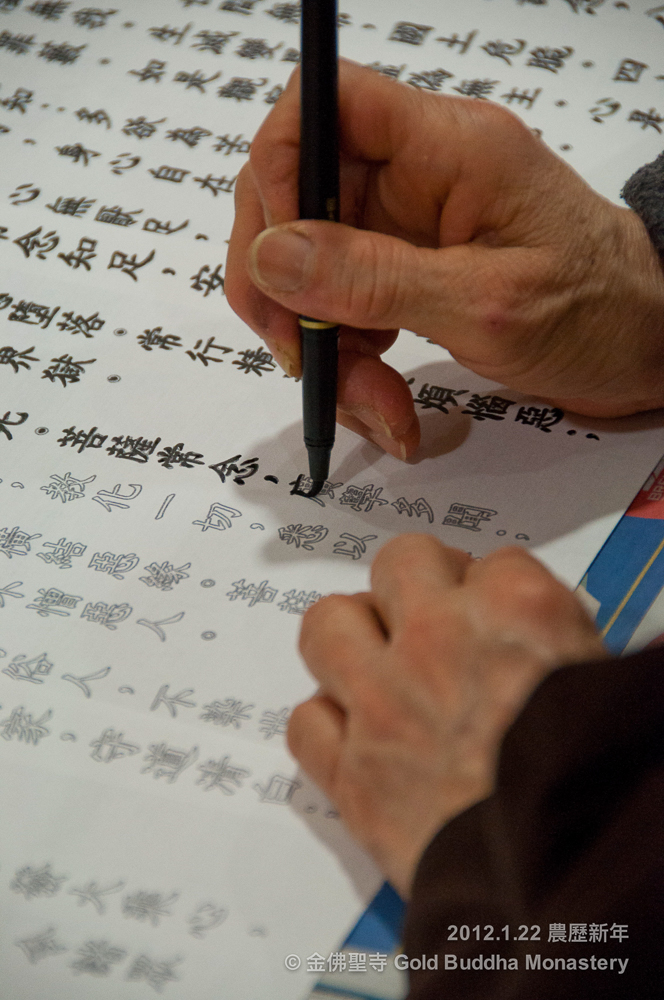 國土危脆。四
無我。生滅變 偽無主。心是
罪藪。如是觀
知:多欲為苦
,身心自在
心無厭足,
念知足,安
墮落。常行精 煩惱惡;
界獄。
。菩薩常念,廣學多聞;
,教化一切,悉以
橫結惡緣。菩薩
憎惡人。
俗人,不染世
家,守道清白;
發大乘心,
令諸眾
2012.1.22 農歷新年
© 金佛聖寺 Gold Buddha Monastery